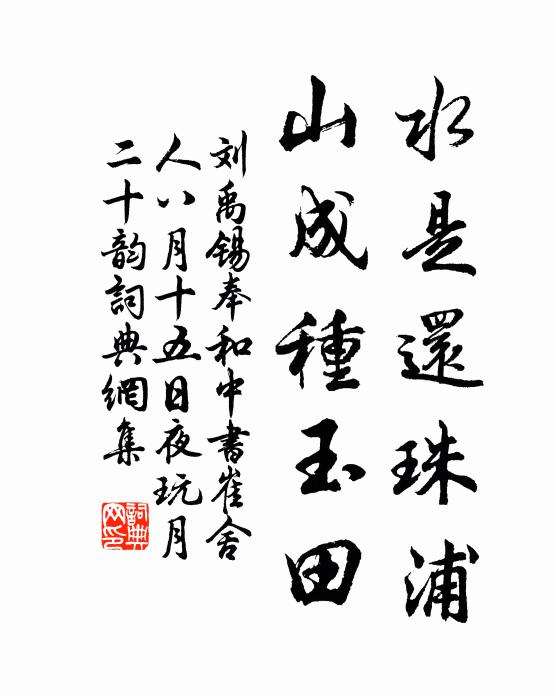 水是還珠浦
山成種玉田
刘禹锡奉和中書崔舍
人八月十五日夜玩月
二十韵詞典網集
詞典
网印